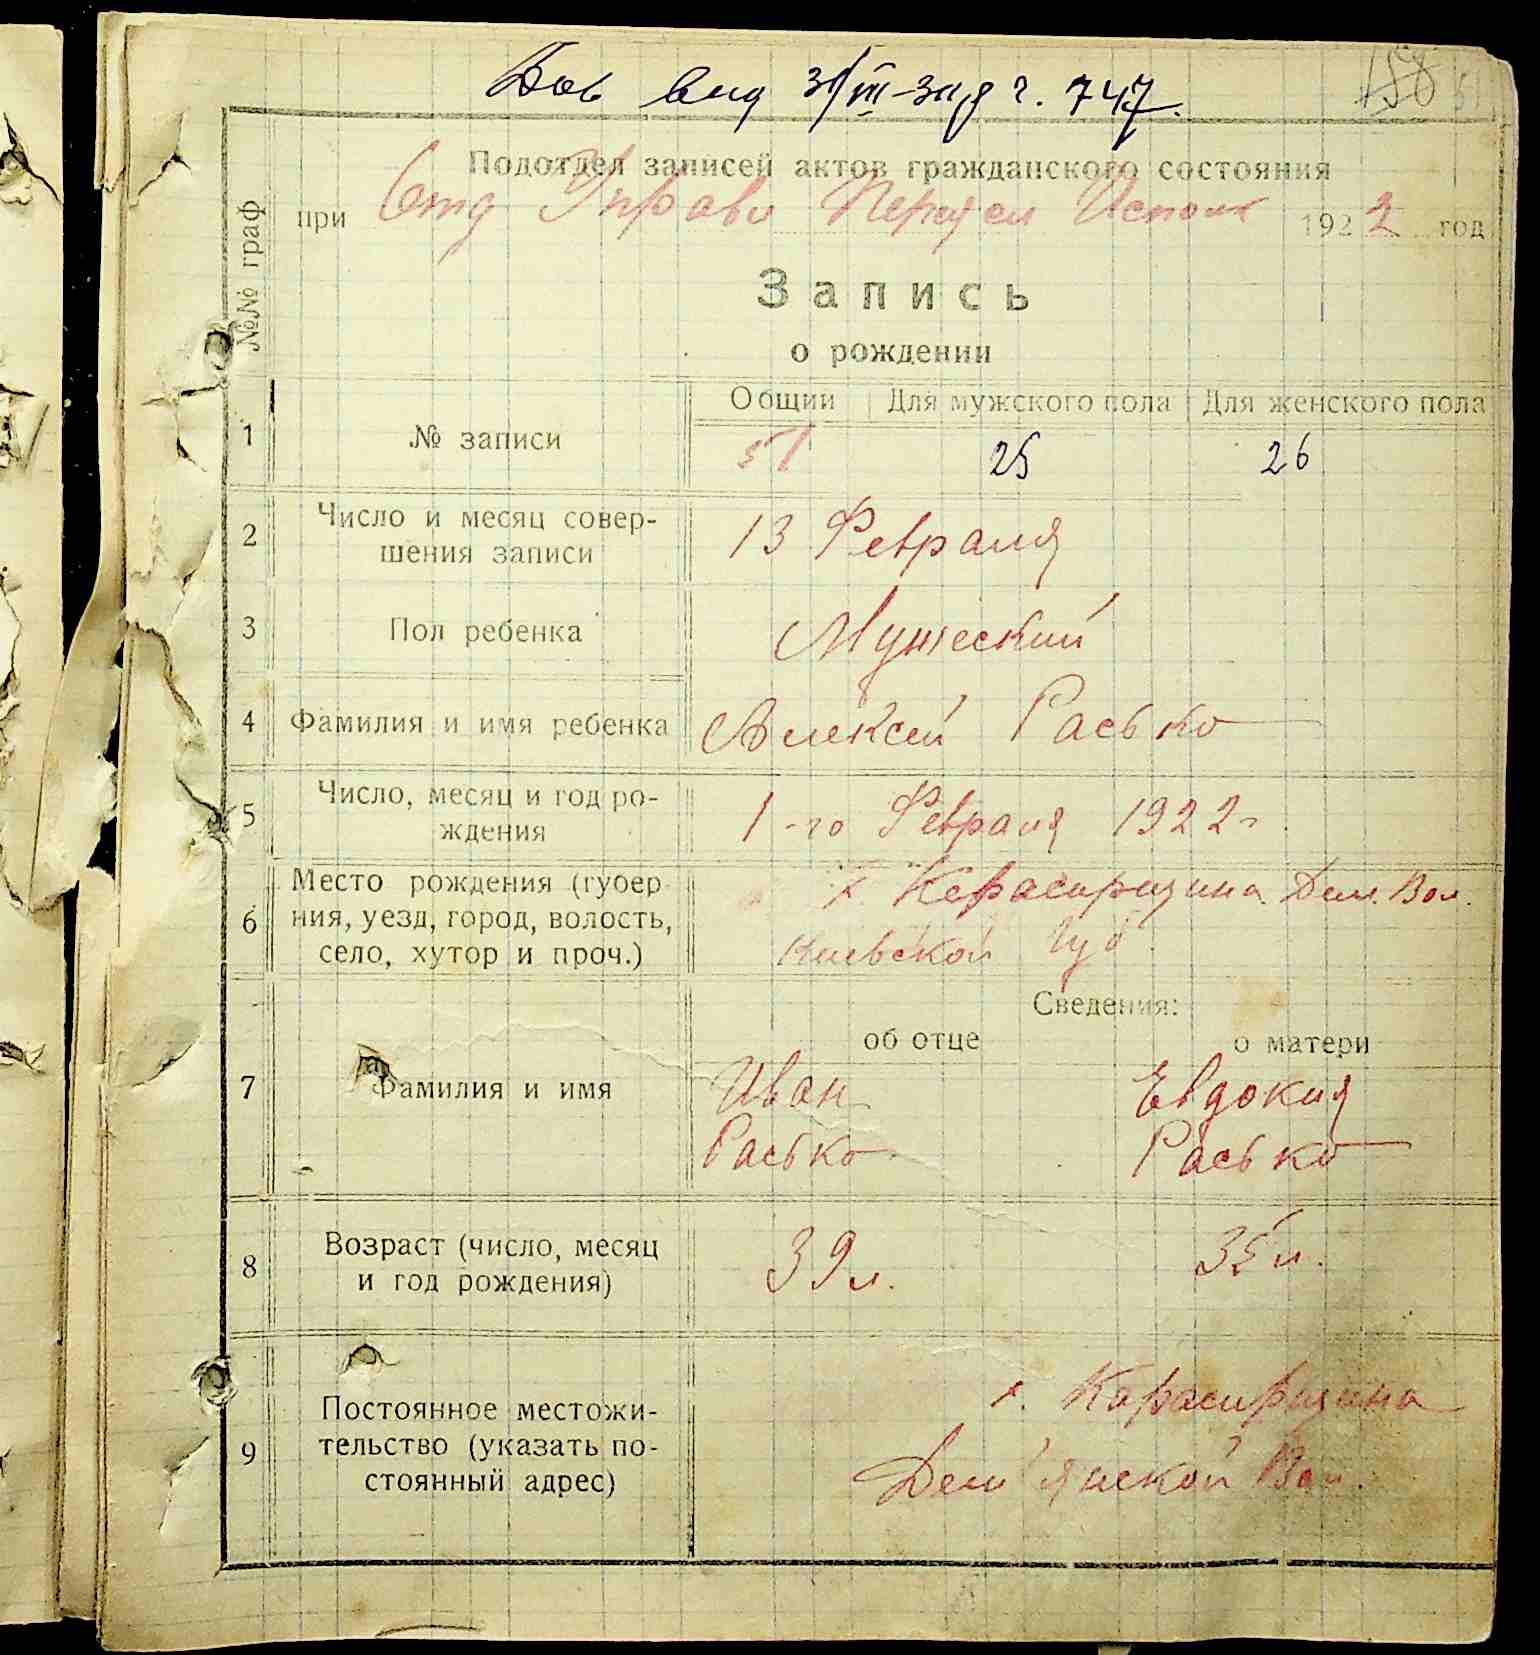 Дов вид 31/III-32 р ч. 747.
158 51
Подотдел записей актов гражданского состояния
при Отд Управ Переясл Исполк 1922 год
Запись
о рождении
№№ граф
Общий Для мужского пола Для женского пола
1 № записи 51 25 26
2 Число и месяц совер-
шения записи 13 Февраля
3 Пол ребенка Мужеский
4 Фамилия и имя ребенка Алексей Расько
5 Число, месяц и год ро-
ждения 1-го Февраля 1922 г
Место рождения (губер
6 ния, уезд, город, волость,
село, хутор и проч.)
х. Карасирщина Дем. Вол.
Киевской Губ
Сведения:
об отце о матери
7 Фамилия и имя Иван Евдокия
Расько Расько
8 Возраст (число, месяц
и год рождения) 39 л. 35 л.
9 Постоянное местожи-
тельство (указать по-
стоянный адрес)
х. Карасирщина
Дем'янской Вол.